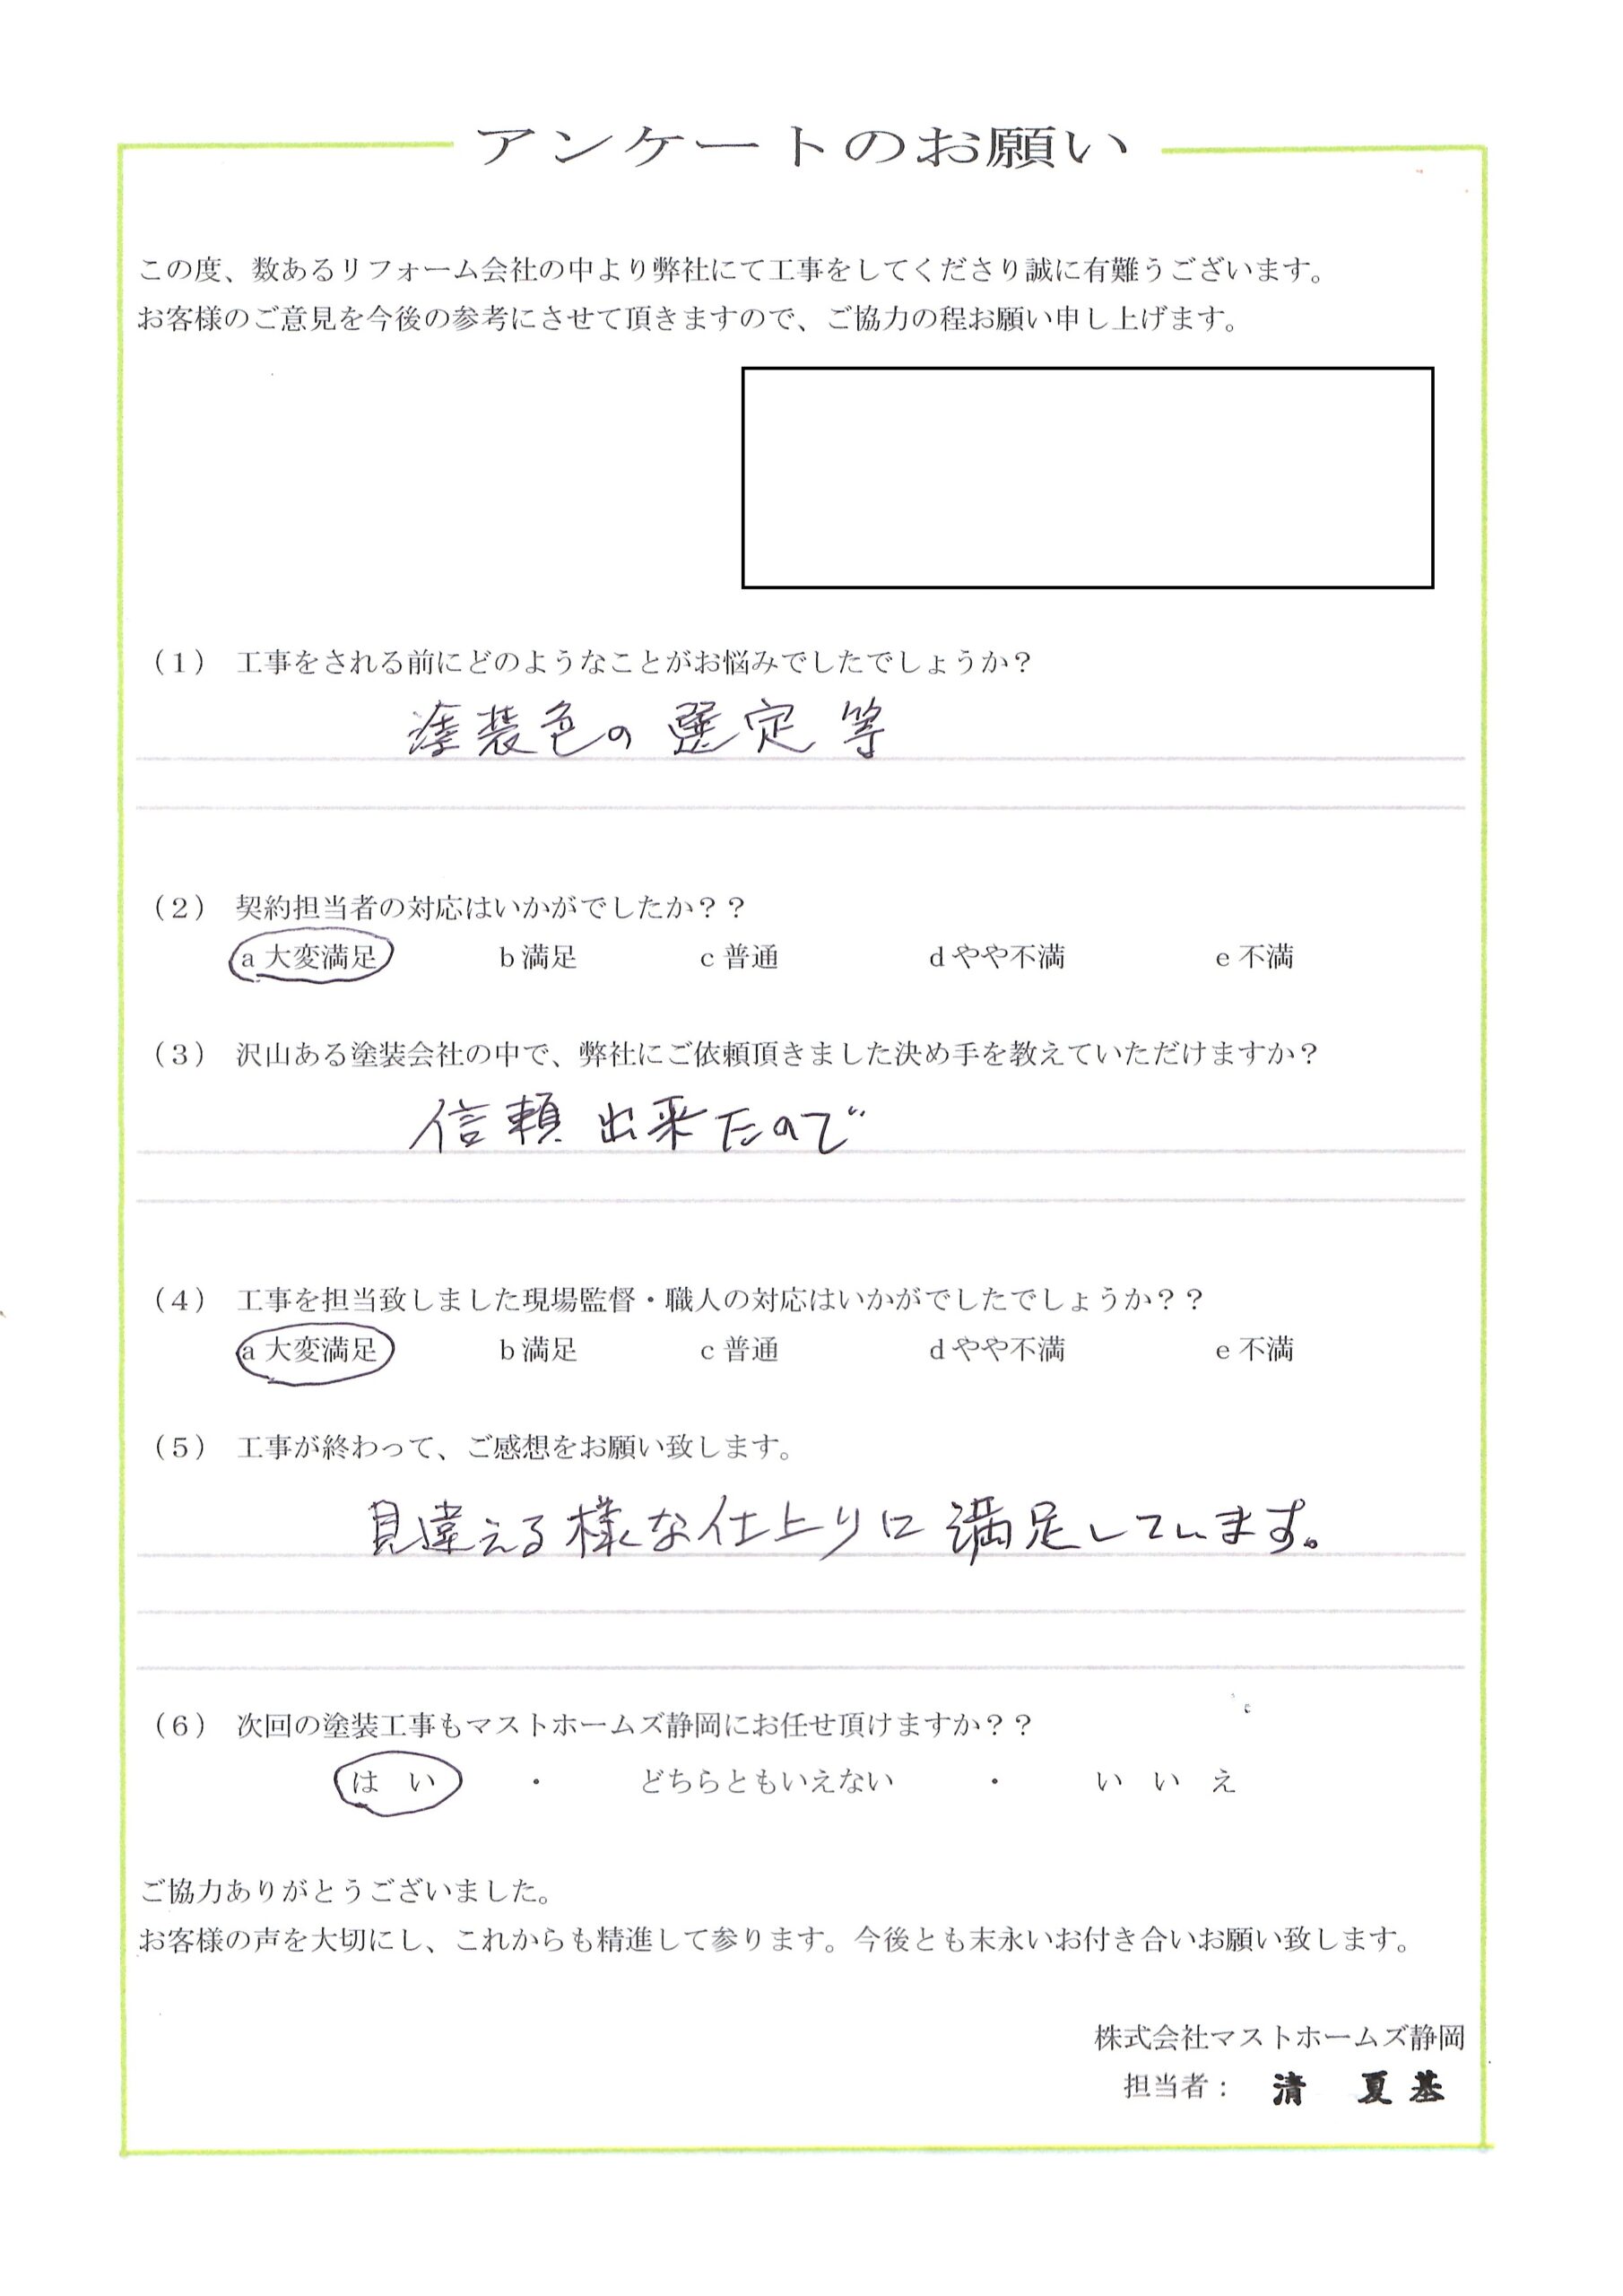 アンケートのお願い
この度、数あるリフォーム会社の中より弊社にて工事をしてくださり誠に有難うございます。
お客様のご意見を今後の参考にさせて頂きますので、ご協力の程お願い申し上げます。
（1）　工事をされる前にどのようなことがお悩みでしたでしょうか？
塗装色の選定等
（2）　契約担当者の対応はいかがでしたか？？
a 大変満足　b 満足　c 普通　d やや不満　e 不満
（3）　沢山ある塗装会社の中で、弊社にご依頼頂きました決め手を教えていただけますか？
信頼出来たので
（4）　工事を担当致しました現場監督・職人の対応はいかがでしたでしょうか？？
a 大変満足　b 満足　c 普通　d やや不満　e 不満
（5）　工事が終わって、ご感想をお願い致します。
見違える様な仕上りに満足しています。
（6）　次回の塗装工事もマストホームズ静岡にお任せ頂けますか？？
は　い　・　どちらともいえない　・　い　い　え
ご協力ありがとうございました。
お客様の声を大切にし、これからも精進して参ります。今後とも末永いお付き合いお願い致します。
株式会社マストホームズ静岡
担当者：　清　夏基